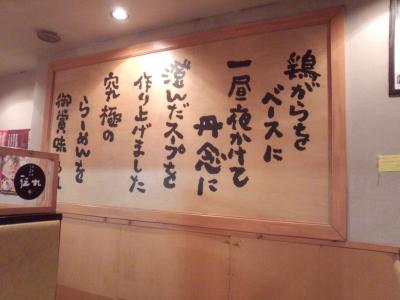 鶏がらを
ベースに
一昼夜かけて
丹念に
澄んだスープを
作り上げました
究極の
らーめんを
御賞味